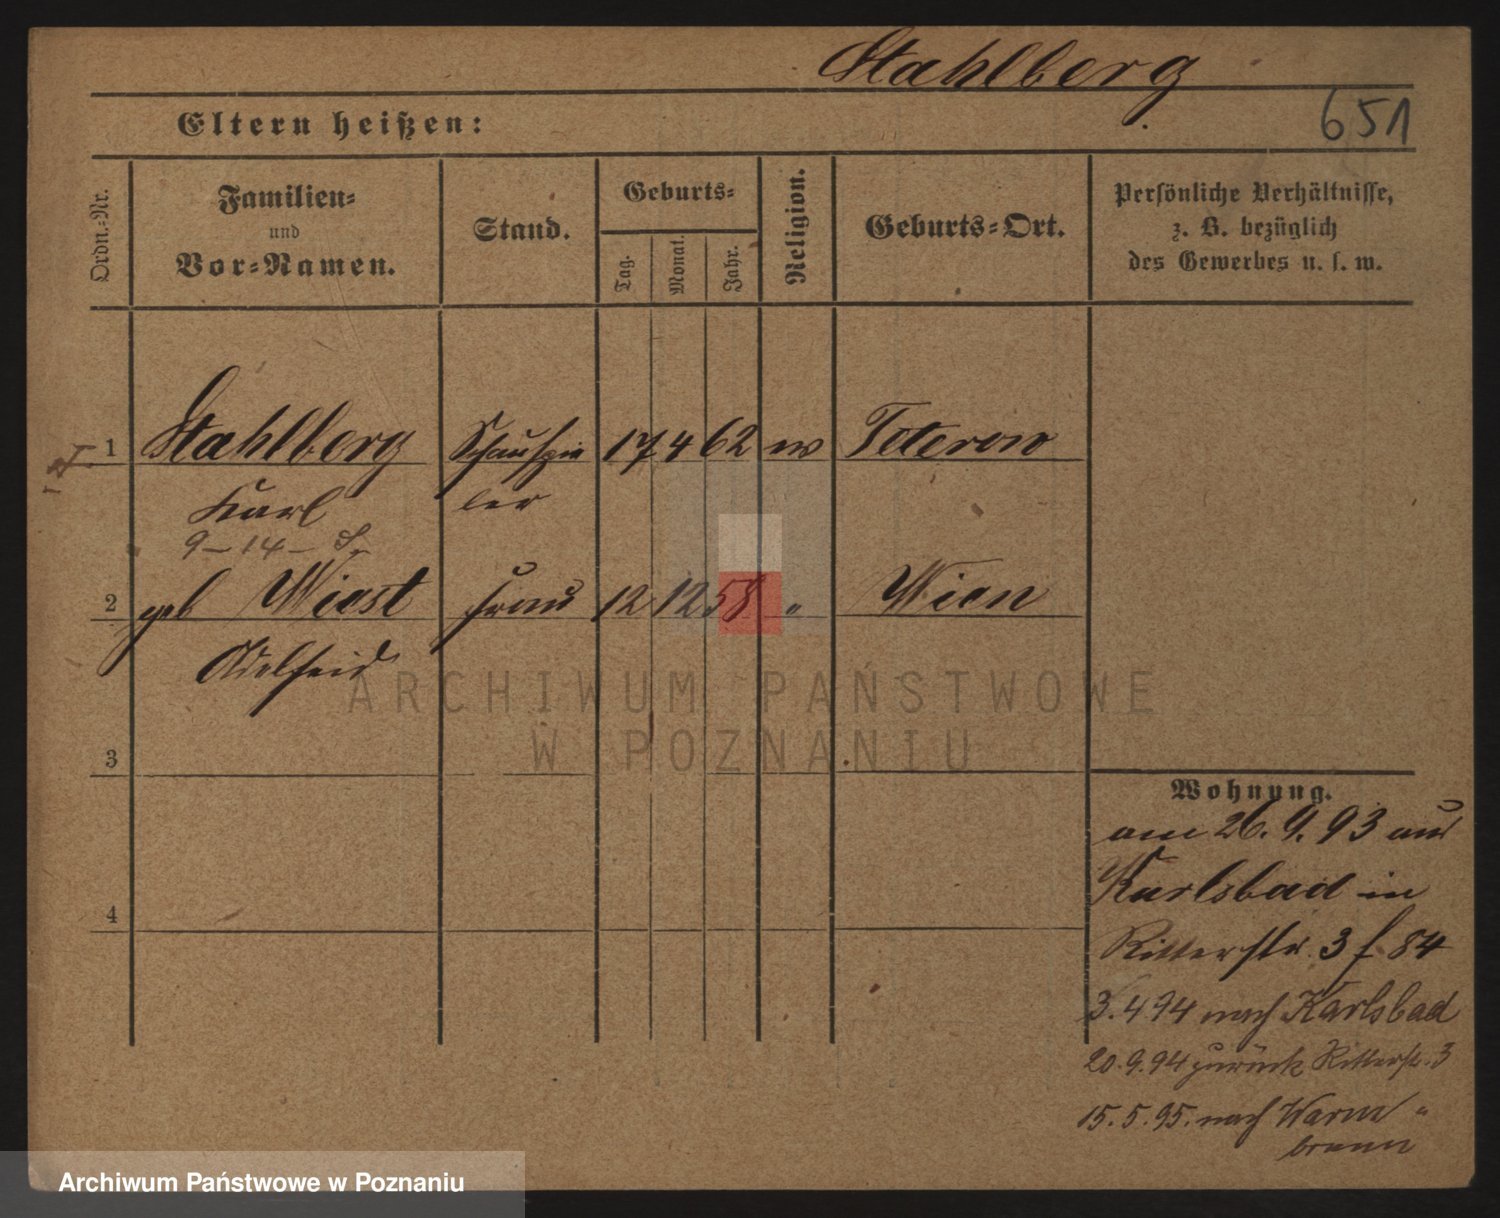 Stahlberg
651
Eltern heißen:
Ordn.-Nr.
Familien-
und
Vor-Namen.
Stand.
Geburts-
Tag.
Monat.
Jahr.
Religion.
Geburts-Ort.
Persönliche Verhältnisse,
z. B. bezüglich
des Gewerbes u. s. w.
1 Stahlberg Schauspie 17 4 62 ev Teterow
Karl ler
9-14-
2 geb Wiest Frau 12 12 58 " Wien
Adelheid
ARCHIWUM PAŃSTWOWE
W POZNANIU
3
4
Wohnung.
am 26. 9. 93 aus
Karlsbad in
Ritterstr. 3 f 84
3. 4 94 nach Karlsbad
20. 9. 94 zurück Ritterstr. 3
15. 5. 95. nach Warm "
brunn
Archiwum Państwowe w Poznaniu